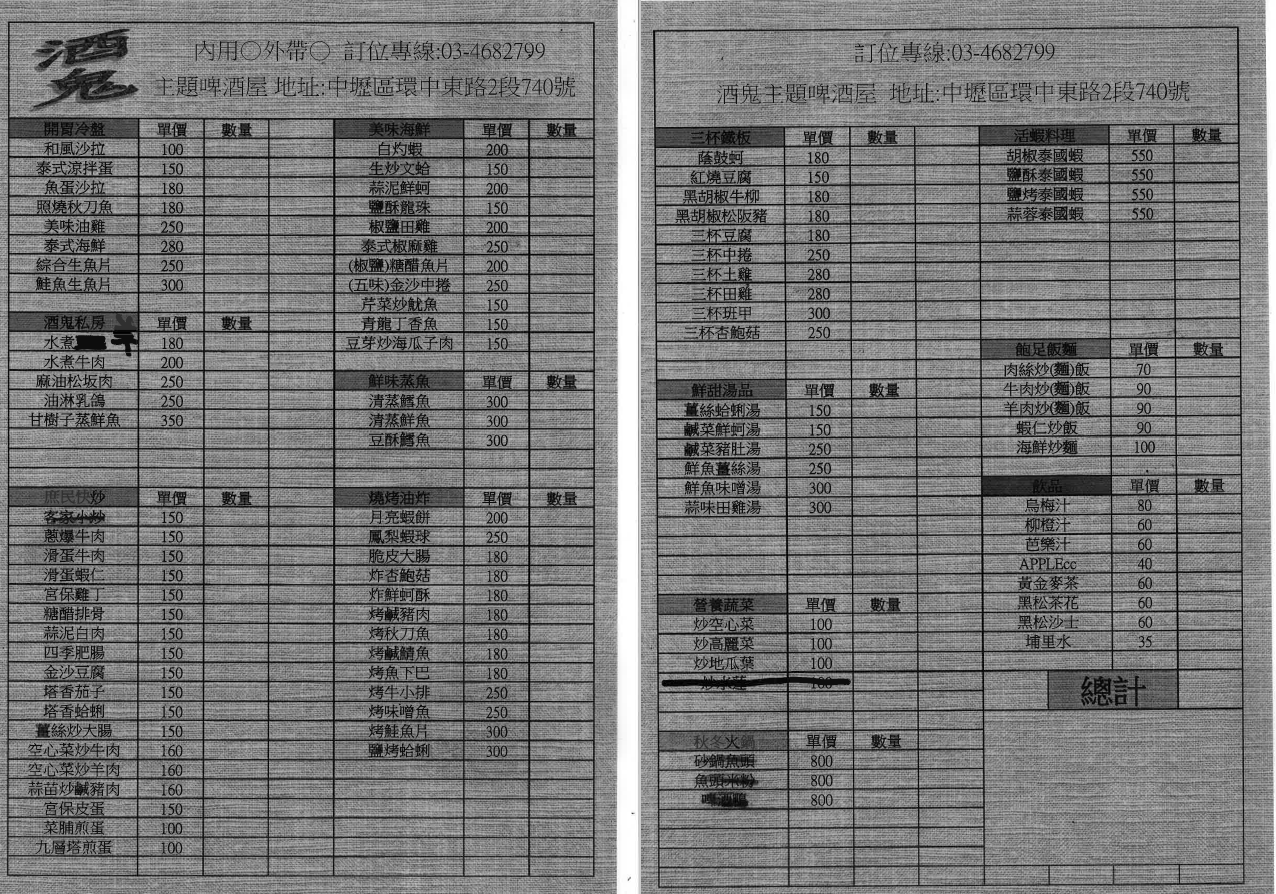 酒鬼
內用○外帶○ 訂位專線:03-4682799
主題啤酒屋 地址:中壢區環中東路2段740號
開胃冷盤 單價 數量
和風沙拉 100
泰式涼拌蛋 150
魚蛋沙拉 180
照燒秋刀魚 180
美味油雞 250
泰式海鮮 280
綜合生魚片 250
鮭魚生魚片 300
酒鬼私房 單價 數量
水煮 180
水煮牛肉 200
麻油松坂肉 250
油淋乳鴿 250
甘樹子蒸鮮魚 350
庶民快炒 單價 數量
客家小炒 150
蔥爆牛肉 150
滑蛋牛肉 150
滑蛋蝦仁 150
宮保雞丁 150
糖醋排骨 150
蒜泥白肉 150
四季肥腸 150
金沙豆腐 150
塔香茄子 150
塔香蛤蜊 150
薑絲炒大腸 150
空心菜炒牛肉 160
空心菜炒羊肉 160
蒜苗炒鹹豬肉 160
宮保皮蛋 150
菜脯煎蛋 100
九層塔煎蛋 100
美味海鮮 單價 數量
白灼蝦 200
生炒文蛤 150
蒜泥鮮蚵 200
鹽酥龍珠 150
椒鹽田雞 200
泰式椒麻雞 250
(椒鹽)糖醋魚片 200
(五味)金沙中捲 250
芹菜炒魷魚 150
青龍丁香魚 150
豆芽炒海瓜子肉 150
鮮味蒸魚 單價 數量
清蒸鱈魚 300
清蒸鮮魚 300
豆酥鱈魚 300
燒烤油炸 單價 數量
月亮蝦餅 200
鳳梨蝦球 250
脆皮大腸 180
炸杏鮑菇 180
炸鮮蚵酥 180
烤鹹豬肉 180
烤秋刀魚 180
烤鹹鯖魚 180
烤魚下巴 180
烤牛小排 250
烤味噌魚 250
烤鮭魚片 300
鹽烤蛤蜊 300
訂位專線:03-4682799
酒鬼主題啤酒屋 地址:中壢區環中東路2段740號
三杯鐵板 單價 數量
蔭鼓蚵 180
紅燒豆腐 150
黑胡椒牛柳 180
黑胡椒松阪豬 180
三杯豆腐 180
三杯中捲 250
三杯土雞 280
三杯田雞 280
三杯班甲 300
三杯杏鮑菇 250
鮮甜湯品 單價 數量
薑絲蛤蜊湯 150
鹹菜鮮蚵湯 150
鹹菜豬肚湯 250
鮮魚薑絲湯 250
鮮魚味噌湯 300
蒜味田雞湯 300
營養蔬菜 單價 數量
炒空心菜 100
炒高麗菜 100
炒地瓜葉 100
炒水蓮 100
秋冬火鍋 單價 數量
砂鍋魚頭 800
魚頭米粉 800
啤酒鴨 800
活蝦料理 單價 數量
胡椒泰國蝦 550
鹽酥泰國蝦 550
鹽烤泰國蝦 550
蒜蓉泰國蝦 550
飽足飯麵 單價 數量
肉絲炒(麵)飯 70
牛肉炒(麵)飯 90
羊肉炒(麵)飯 90
蝦仁炒飯 90
海鮮炒麵 100
飲品 單價 數量
烏梅汁 80
柳橙汁 60
芭樂汁 60
APPLEcc 40
黃金麥茶 60
黑松茶花 60
黑松沙士 60
埔里水 35
總計